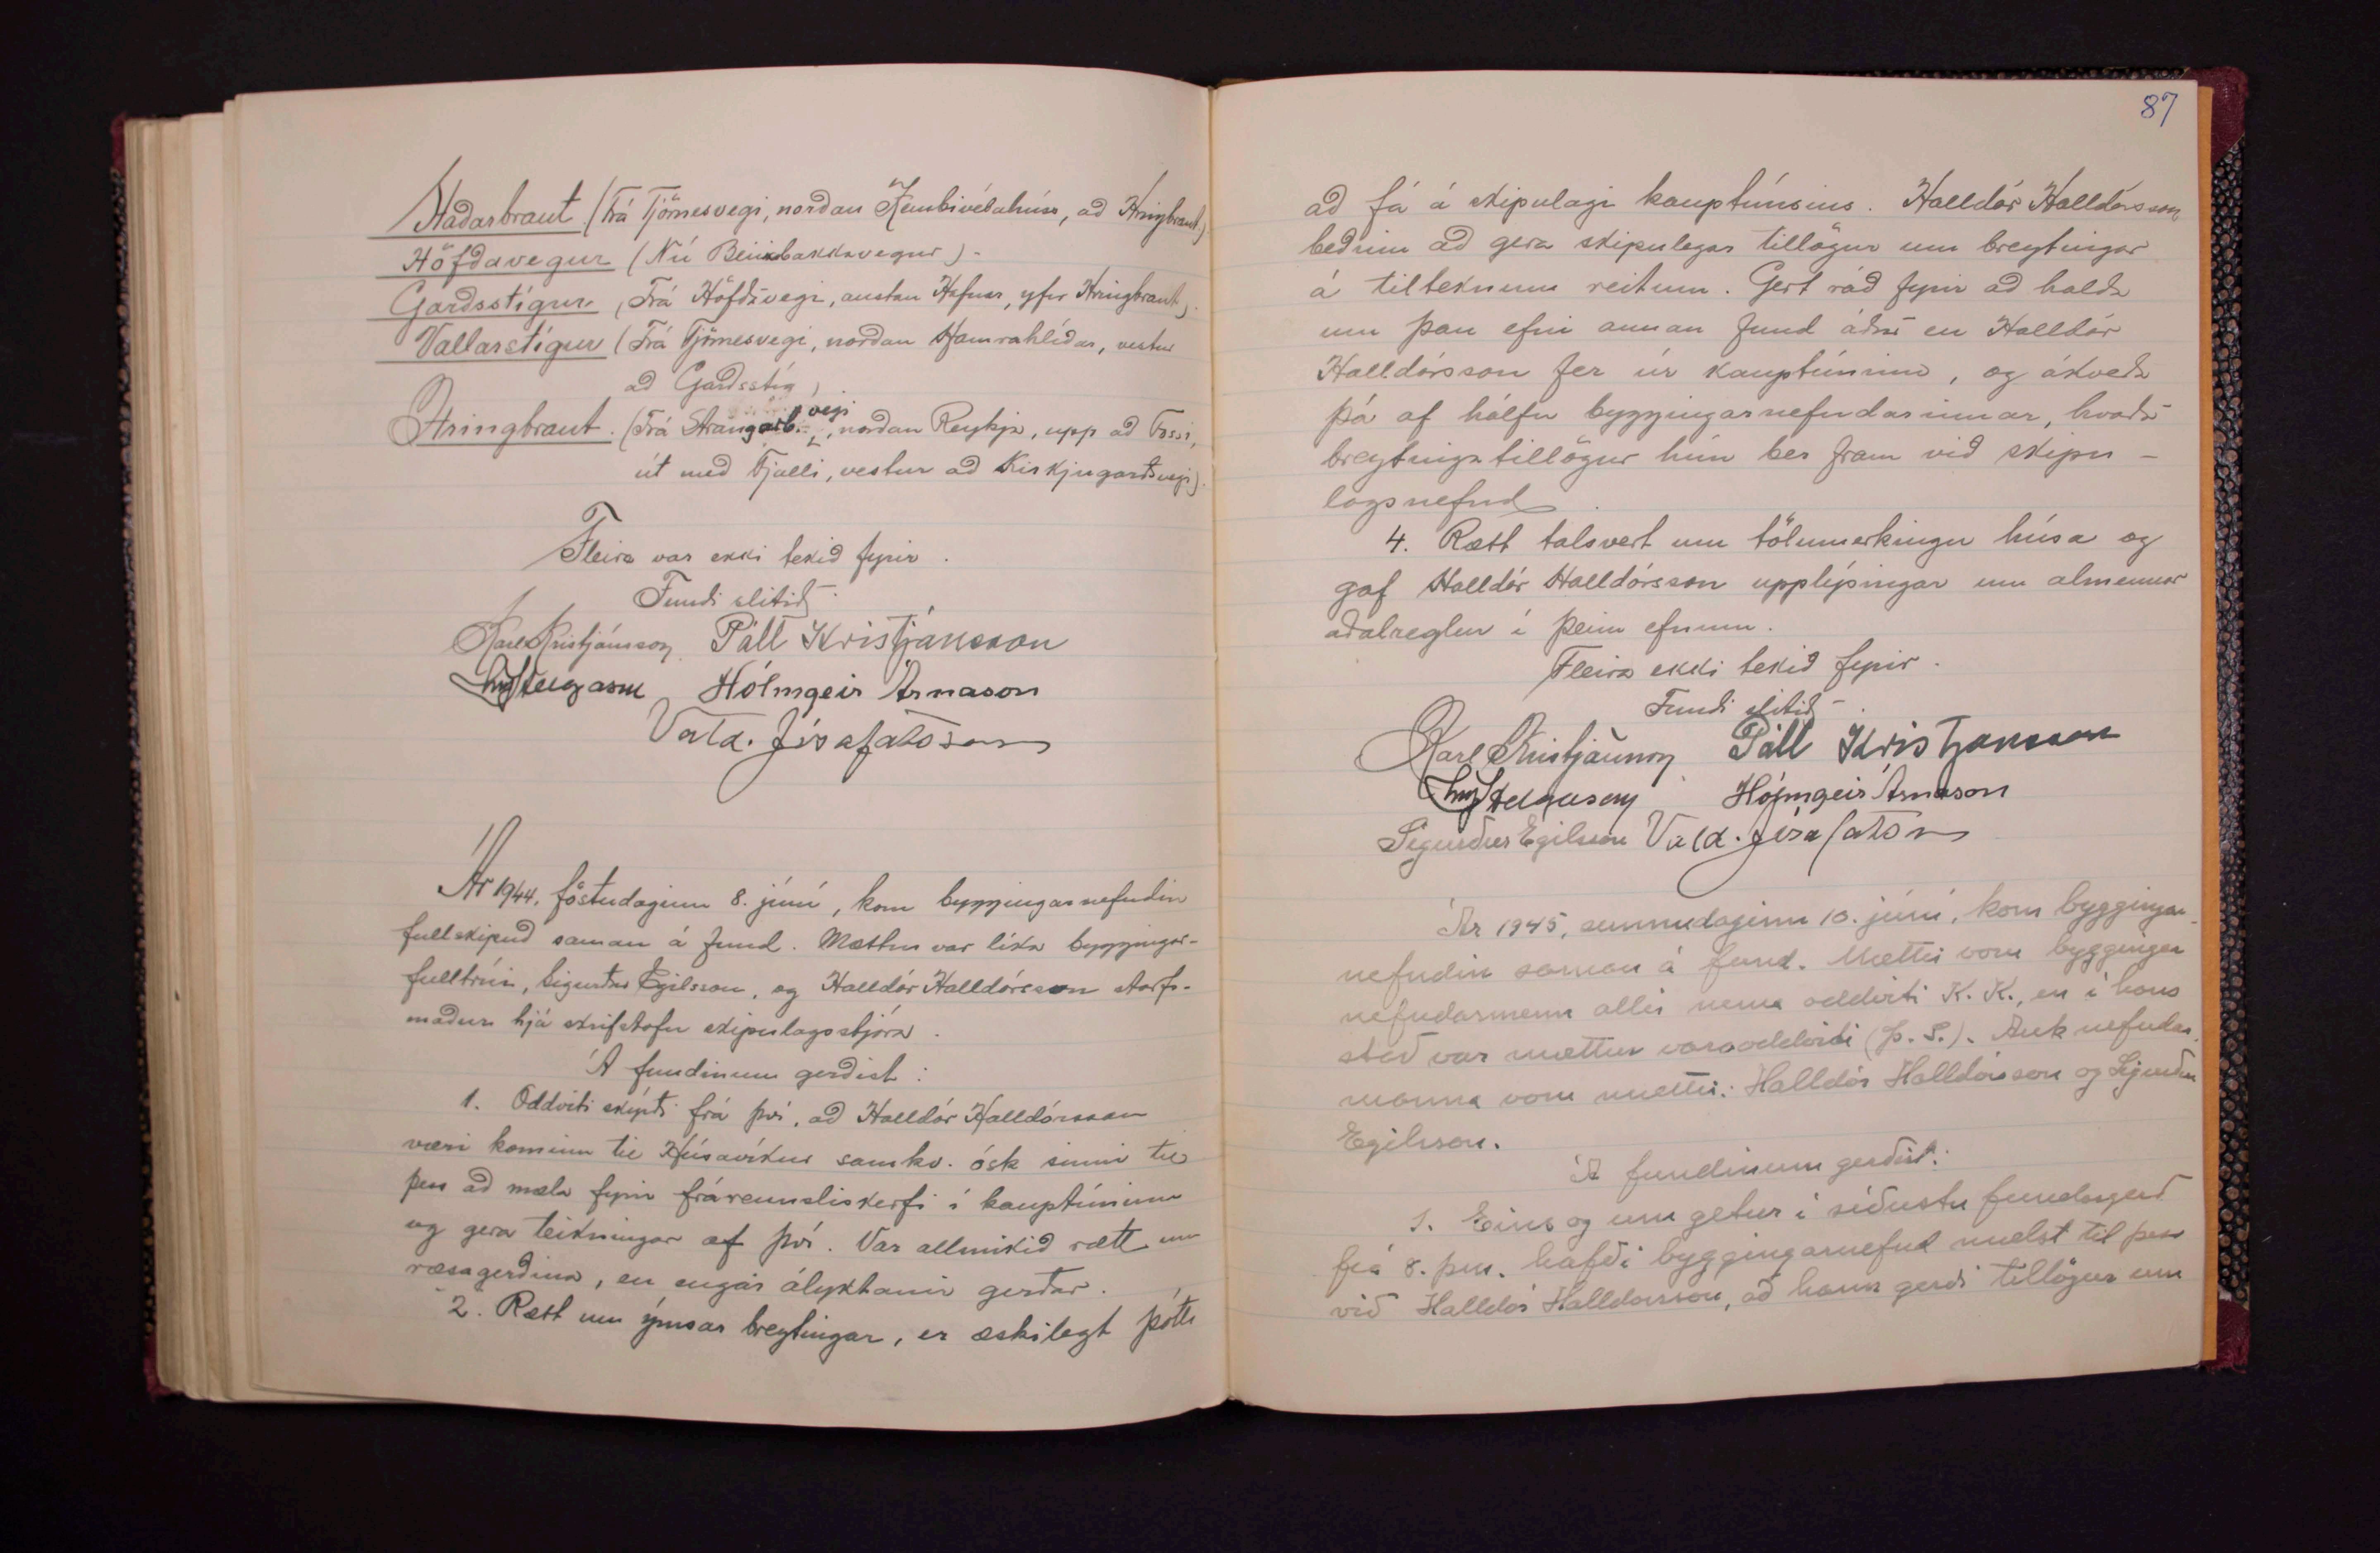 Staðarbraut (Frá Tjörnesvegi, norðan Kembivélahúss, að Hringbraut.)
Höfðavegur (Nú Beinabakkavegur).
Garðsstígur (Frá Höfðavegi, austan Hafnar, yfir Hringbraut).
Vallarstígur (Frá Tjörnesvegi, norðan Hamrahlíðar, vestur
að Garðsstíg)
Hringbraut. (Frá Strangarb.vegi, norðan Reykja, upp að Fossi,
út með Fjalli, vestur að Kirkjugarðsvegi).
Fleira var ekki tekið fyrir.
Fundi slitið.
Karl Kristjánsson Páll Kristjánsson
Hólmgeir Árnason
Vald. Jósafatsson
Ár 1944, föstudaginn 8. júní, kom byggingarnefndin
fullskipuð saman á fund. Mættur var líka byggingar-
fulltrúi, Sigurður Egilsson, og Halldór Halldórsson starfs-
maður hjá skrifstofu skipulagsstjóra.
Á fundinum gerðist:
1. Oddviti skýrði frá því, að Halldór Halldórsson
væri kominn til Húsavíkur samkv. ósk sinni til
þess að mæla fyrir frárennsliskerfi í kauptúninu
og gera teikningar af því. Var allmikið rætt um
ræsagerðina, en engar ályktanir gerðar.
2. Rætt um ýmsar breytingar, er æskilegt þótti
87
að fá á skipulagi kauptúnsins. Halldór Halldórsson
beðinn að gera skipulegar tillögur um breytingar
á tilteknum reitum. Gert ráð fyrir að halda
um þau efni annan fund áður en Halldór
Halldórsson fer úr kauptúninu, og ákveða
þá af hálfu byggingarnefndarinnar, hvaða
breytingatillögur hún ber fram við skipu-
lagsnefnd.
4. Rætt talsvert um tölumerkingu húsa og
gaf Halldór Halldórsson upplýsingar um almennar
aðalreglur í þeim efnum.
Fleira ekki tekið fyrir.
Fundi slitið.
Karl Kristjánsson Páll Kristjánsson
Hólmgeir Árnason
Sigurður Egilsson Vald. Jósafatsson
Ár 1945, sunnudaginn 10. júní, kom byggingar-
nefndin saman á fund. Mættir voru byggingar
nefndarmenn allir nema oddviti K. K., en í hans
stað var mættur varaoddviti (Þ. S.). Auk nefndar-
manna voru mættir: Halldór Halldórsson og Sigurður
Egilsson.
Á fundinum gerðist:
1. Eins og um getur í síðustu fundargerð
frá 8. þ.m. hafði byggingarnefnd mælst til þess
við Halldór Halldórsson, að hann gerði tillögur um